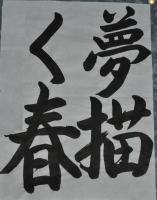 夢描
く春